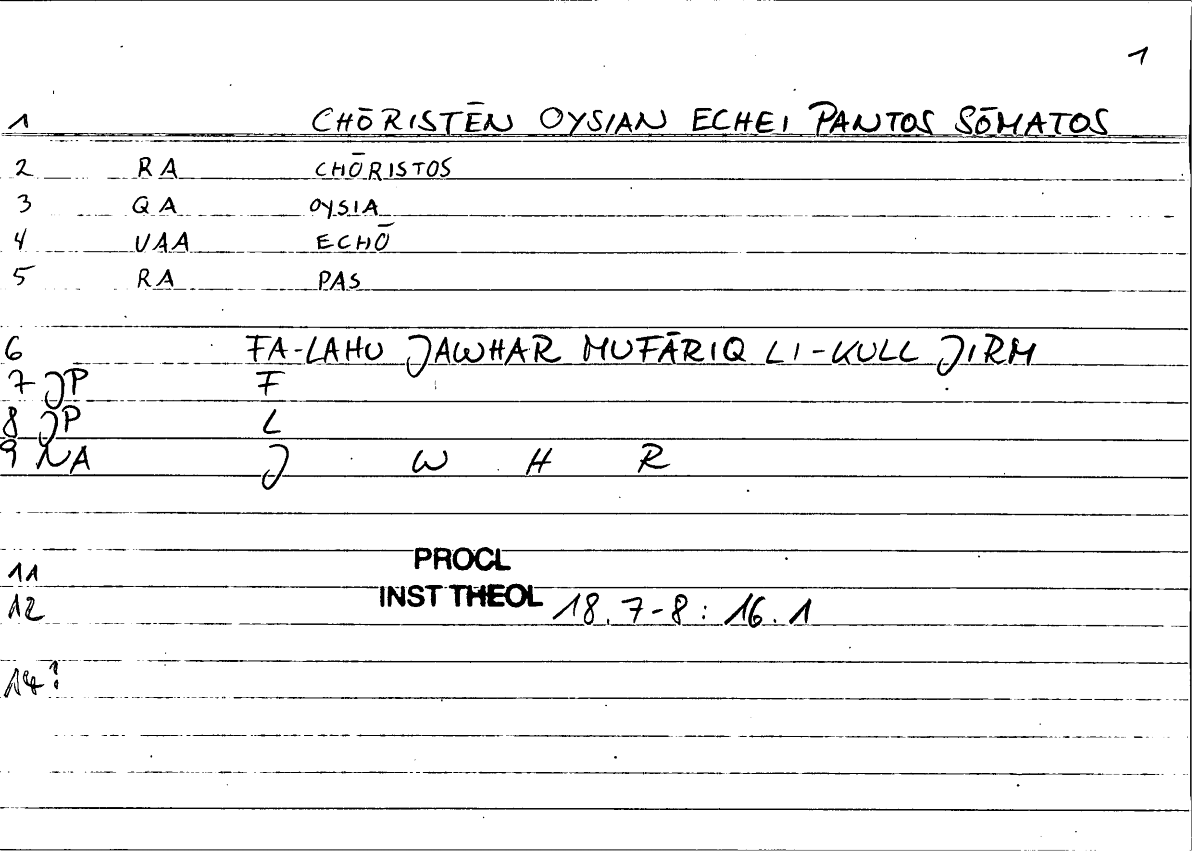 1
1 CHŌRISTĒN OYSIAN ECHEI PANTOS SŌMATOS
2 RA CHŌRISTOS
3 QA OYSIA
4 VAA ECHŌ
5 RA PAS
6 FA-LAHU JAWHAR MUFĀRIQ LI-KULL JIRM
7 JP F
8 JP L
9 NA J W H R
11 PROCL
12 INST THEOL 18.7-8: 16.1
14?